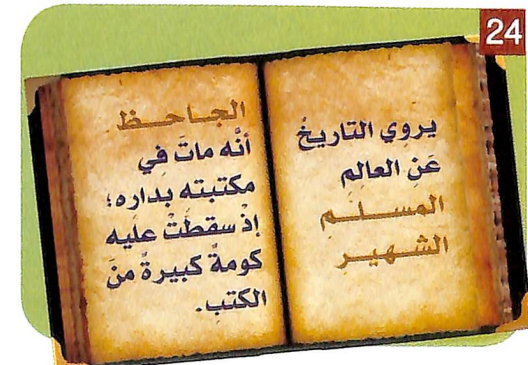 24
يروي التاريخُ
عَنِ العالِمِ
المسلمِ
الشهيرِ
الجاحظ
أنَّه ماتَ فِي
مكتبته بداره؛
إذْ سقطَتْ عليه
كومةٌ كبيرةٌ منَ
الكتبِ.